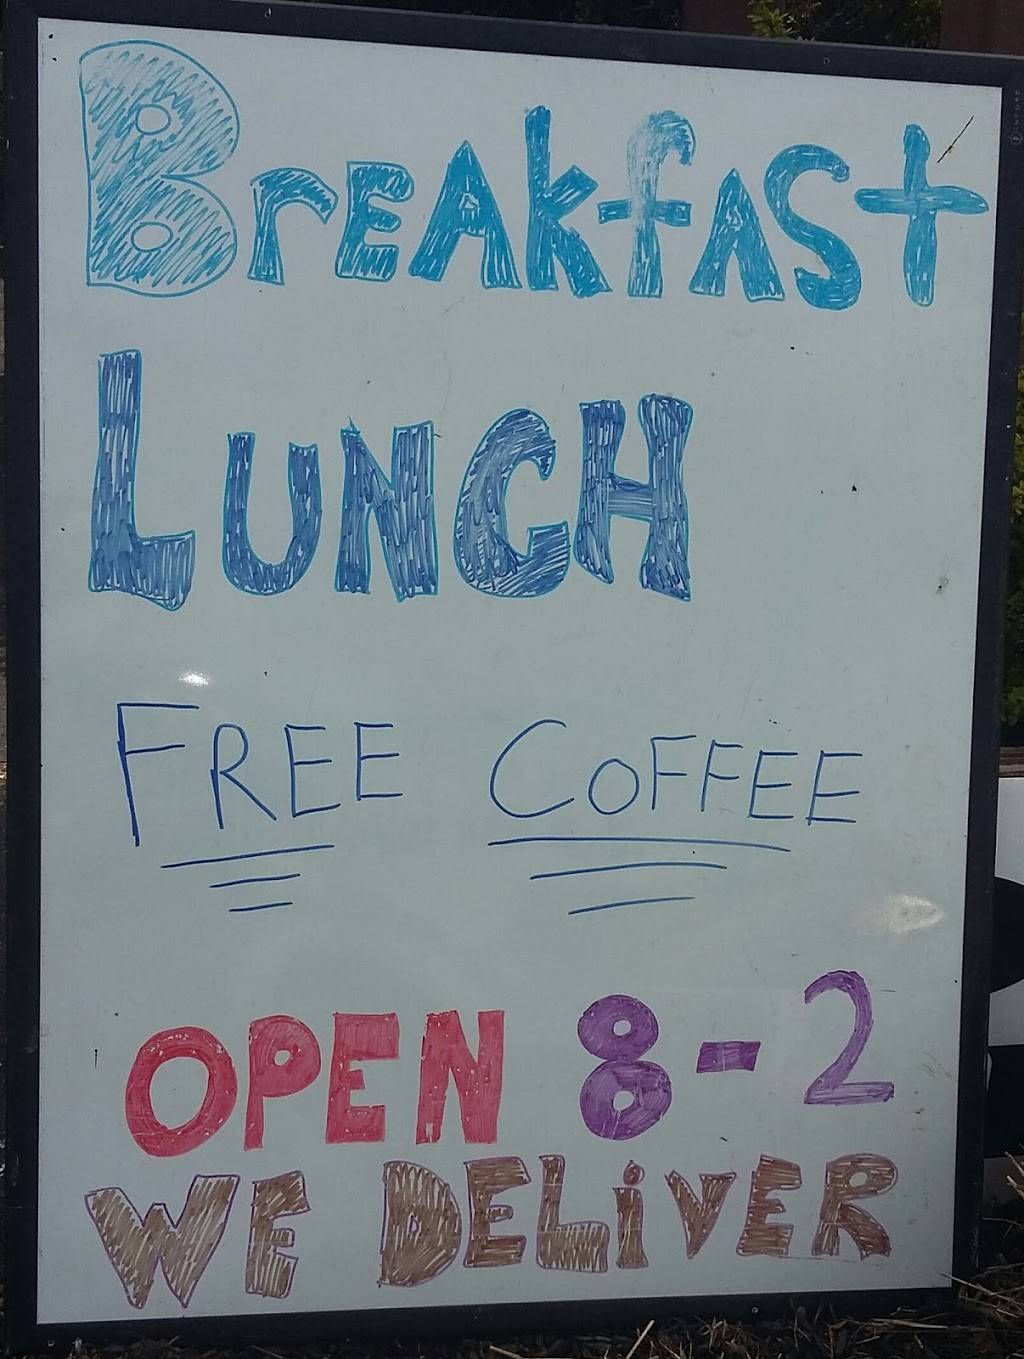 BreakfAst
LUNCH
FREE COFFEE
OPEN 8-2
WE DELiVER